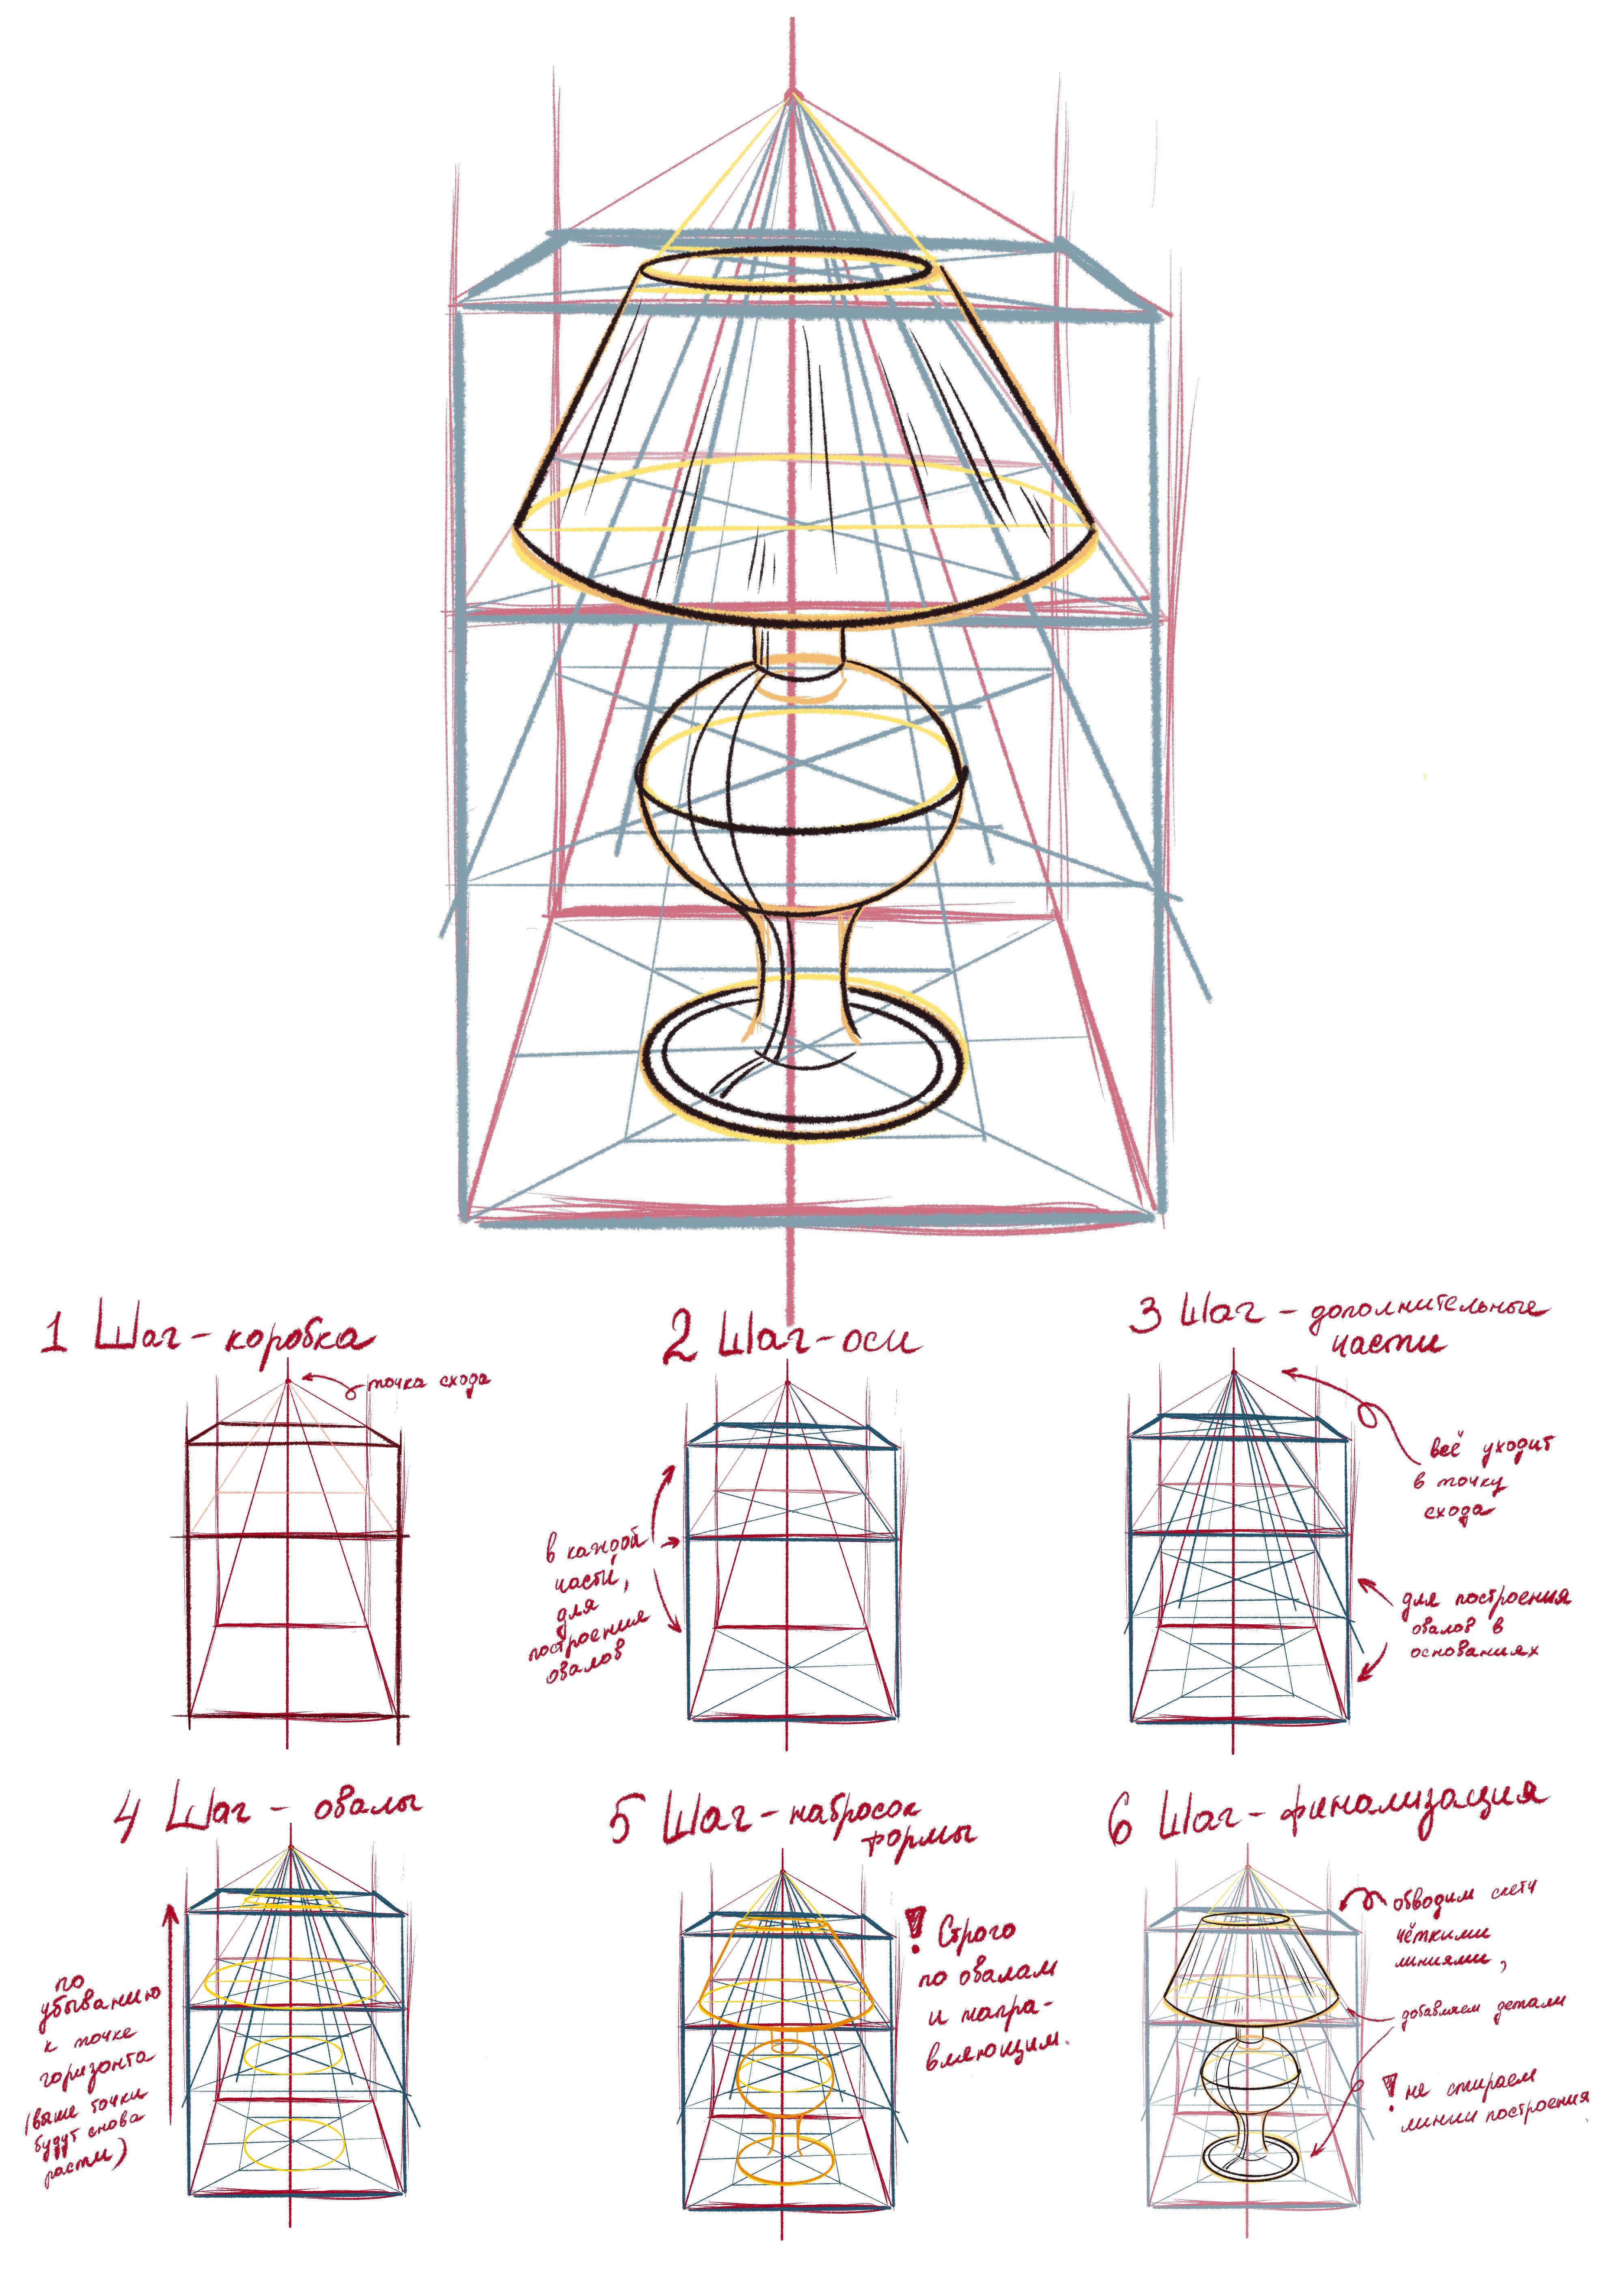 1 Шаг - коробка
точка схода
2 Шаг - оси
в каждой
части,
для
построения
овалов
3 Шаг - дополнительные
части
всё уходит
в точку
схода
для построения
овалов в
основаниях
4 Шаг - овалы
по
убыванию
к точке
горизонта
(выше точки
будут снова
расти)
5 Шаг - набросок
формы
! Строго
по овалам
и напра-
вляющим.
6 Шаг - финализация
обводим скетч
чёткими
линиями,
добавляем детали
! не стираем
линии построения